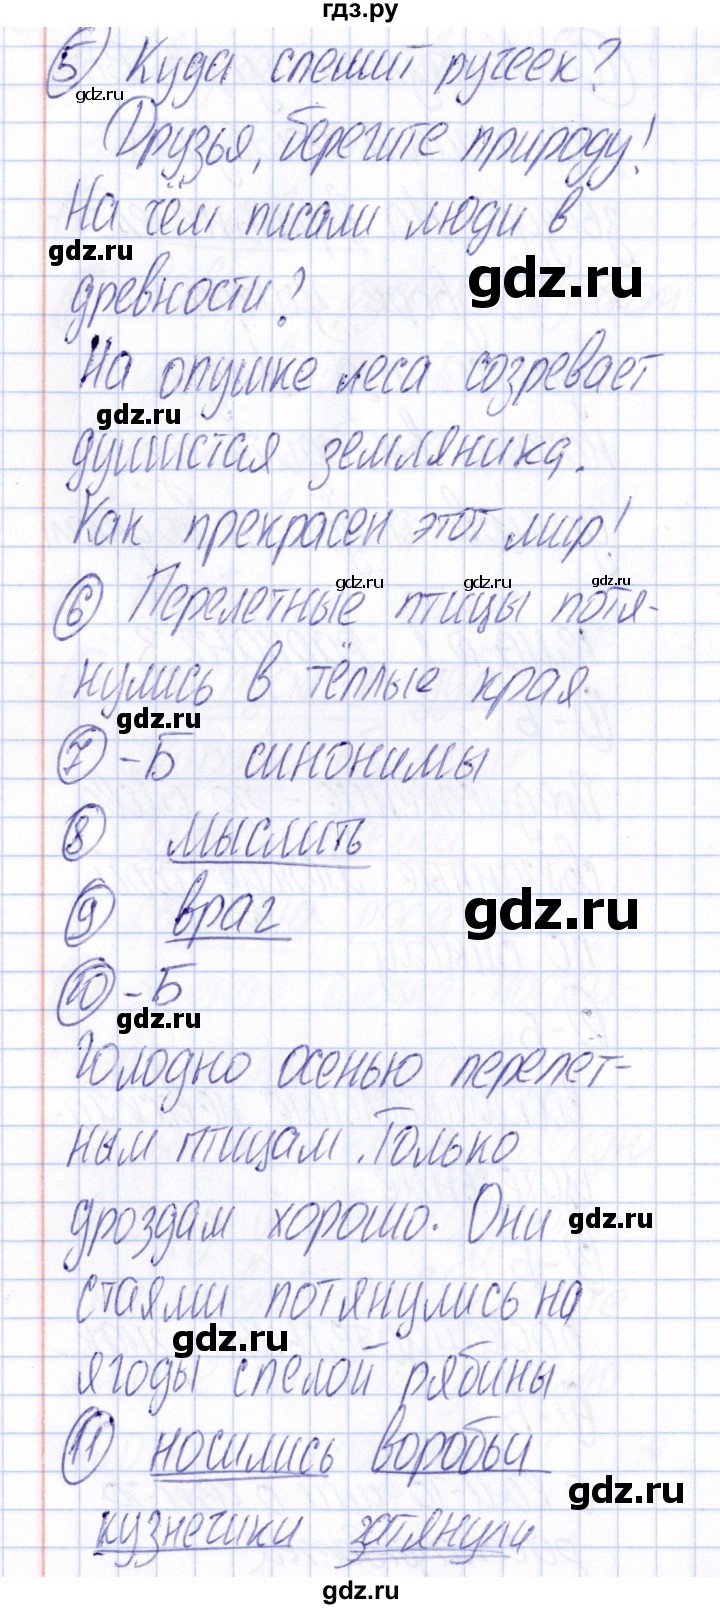 гдз.ру
5 Куда спешит ручеек?
gdz.ru
Друзья, берегите природу!
На чём писали люди в
gdz.ru
gdz.ru
древности?
На опушке леса созревает
gdz.ru
душистая земляника.
Как прекрасен этот мир!
gdz.ru gdz.ru gdz.ru
6 Перелетные птицы потя-
нулись в тёплые края
gdz.ru
7 -Б синонимы
8 мыслить
9 враг
gdz.ru
10 -Б
gdz.ru
Голодно осенью перелет-
ным птицам. Только
дроздам хорошо. Они
gdz.ru
стаями потянулись на
gdz.ru
ягоды спелой рябины
11 носились воробьи
gdz.ru
кузнечики затянули
gdz.ru